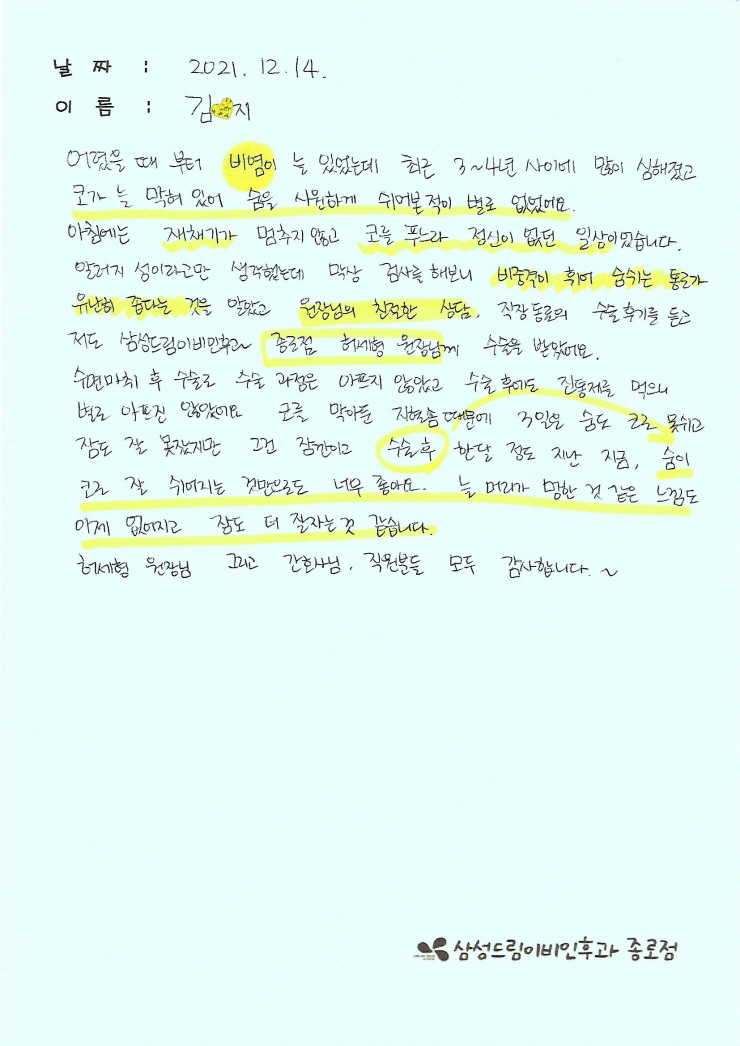 날 짜 : 2021. 12. 14.
이 름 : 김 지
어렸을 때 부터 비염이 늘 있었는데 최근 3~4년 사이에 많이 심해졌고
코가 늘 막혀 있어 숨을 시원하게 쉬어본 적이 별로 없었어요.
아침에는 재채기가 멈추지 않고 코를 푸느라 정신이 없던 일상이었습니다.
알러지 성이라고만 생각했는데 막상 검사를 해보니 비중격이 휘어 숨쉬는 통로가
유난히 좁다는 것을 알았고 원장님의 친절한 상담, 직장동료의 수술후기를 듣고
저도 삼성드림이비인후과 종로점 허세형 원장님께 수술을 받았어요.
수면마취 후 수술로 수술 과정은 아프지 않았고 수술 후에도 진통제를 먹으니
별로 아프진 않았어요 코를 막아둔 지혈솜 때문에 3일은 숨도 코로 못쉬고
잠도 잘 못잤지만 그건 잠깐이고 수술 후 한달 정도 지난 지금, 숨이
코로 잘 쉬어지는 것만으로도 너무 좋아요. 늘 머리가 멍한 것 같은 느낌도
이제 없어지고 잠도 더 잘자는것 같습니다.
허세형 원장님 그리고 간호사님, 직원분들 모두 감사합니다. ~
삼성드림이비인후과 종로점